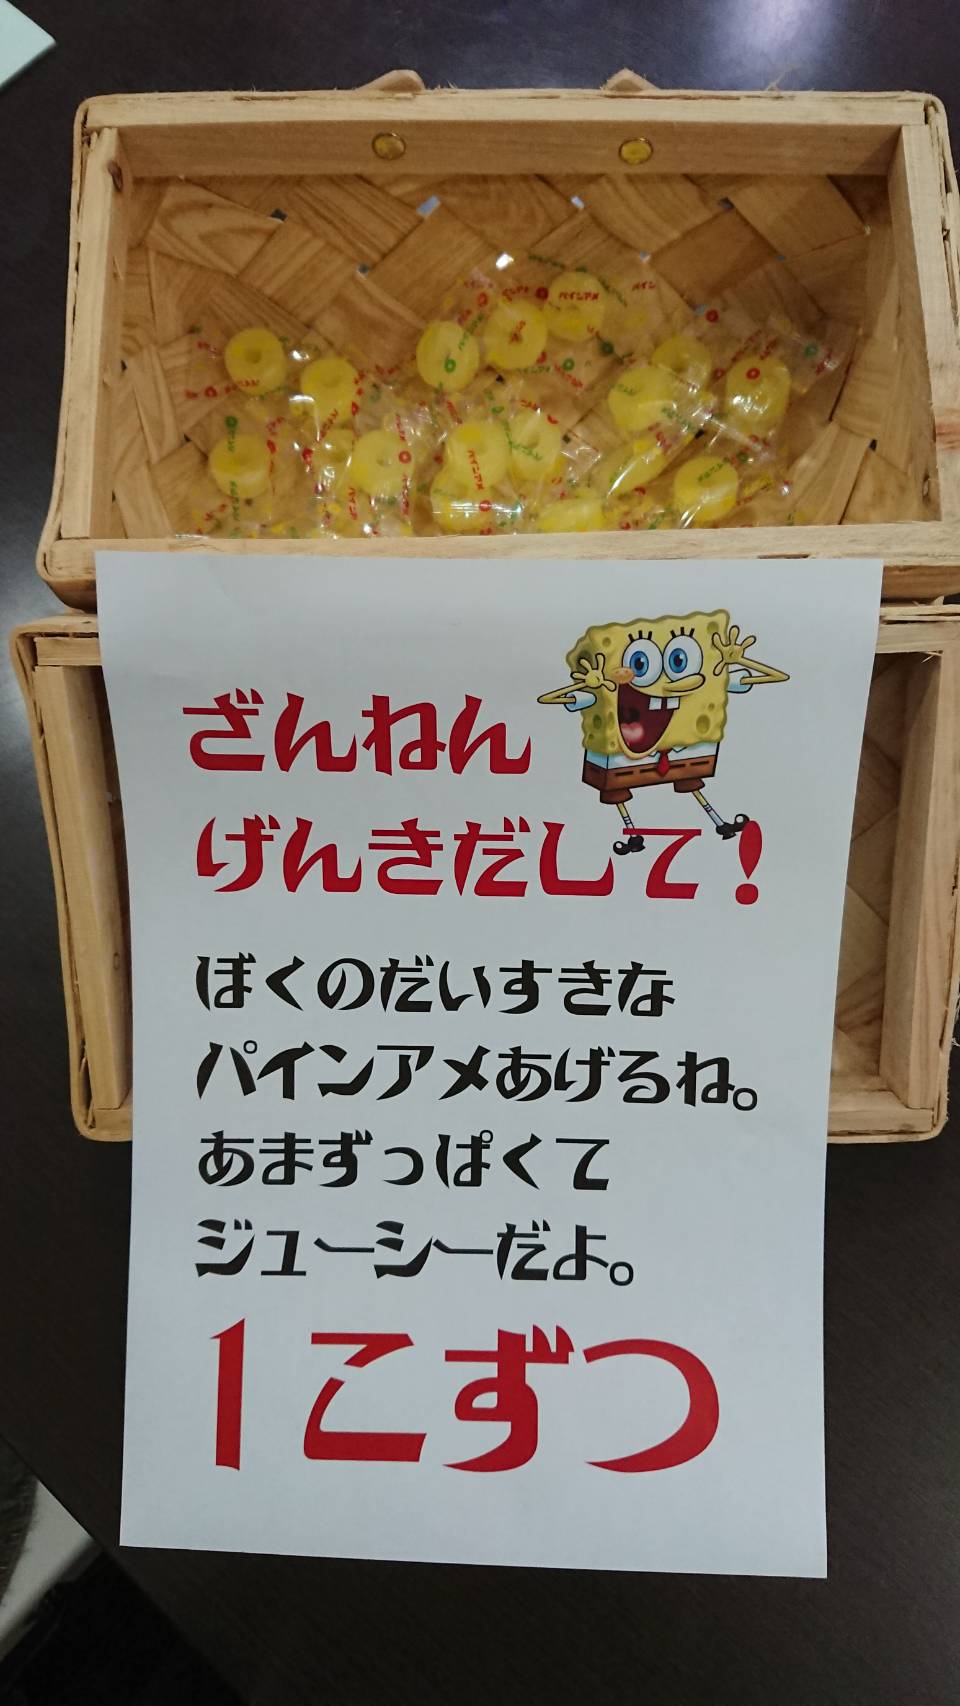 パインアメ
ざんねん
げんきだして!
ぼくのだいすきな
パインアメあげるね。
あまずっぱくて
ジューシーだよ。
1こずつ